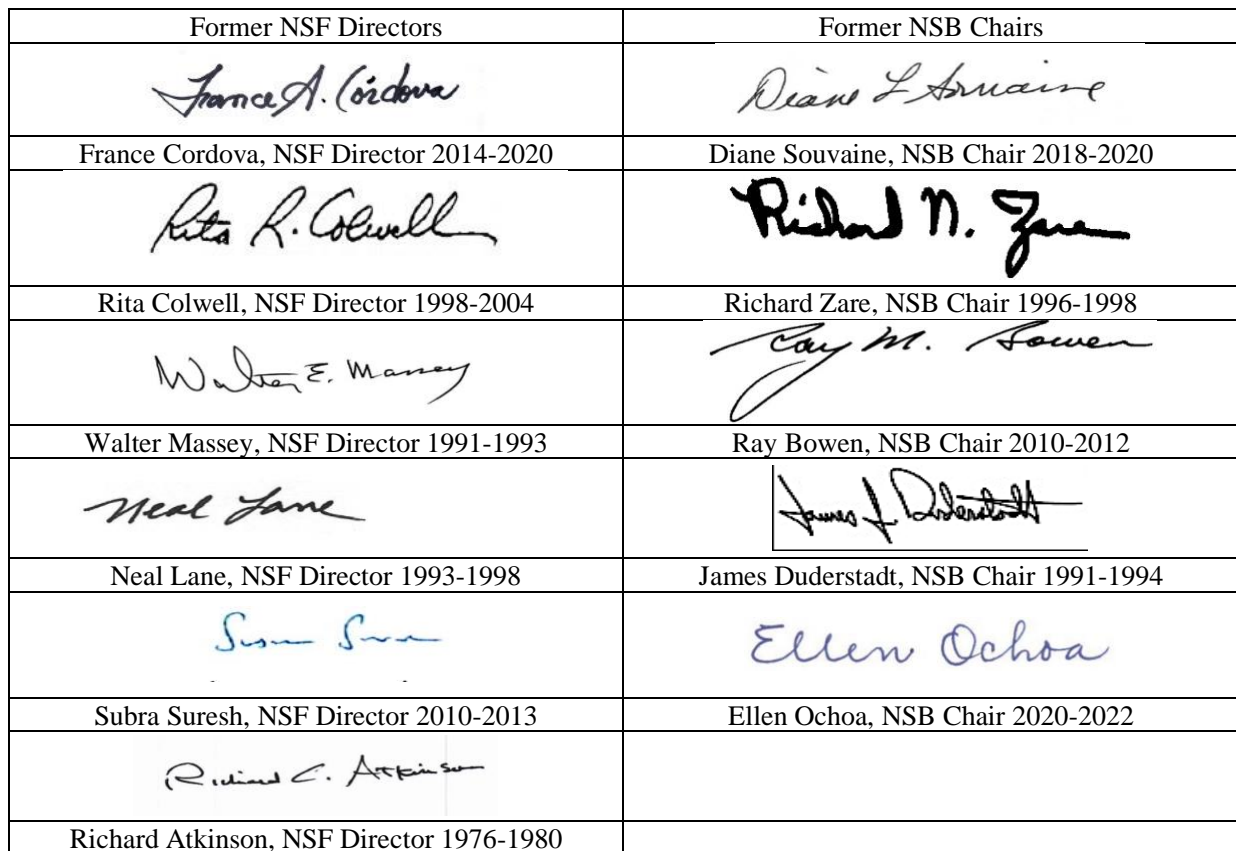 Former NSF Directors
Former NSB Chairs
France A. Córdova
Diane L Souvaine
France Cordova, NSF Director 2014-2020
Diane Souvaine, NSB Chair 2018-2020
Rita R. Colwell
Richard N. Zare
Rita Colwell, NSF Director 1998-2004
Richard Zare, NSB Chair 1996-1998
Walter E. Massey
Ray M. Bowen
Walter Massey, NSF Director 1991-1993
Ray Bowen, NSB Chair 2010-2012
Neal Lane
James J. Duderstadt
Neal Lane, NSF Director 1993-1998
James Duderstadt, NSB Chair 1991-1994
Ellen Ochoa
Subra Suresh, NSF Director 2010-2013
Ellen Ochoa, NSB Chair 2020-2022
Richard C. Atkinson
Richard Atkinson, NSF Director 1976-1980